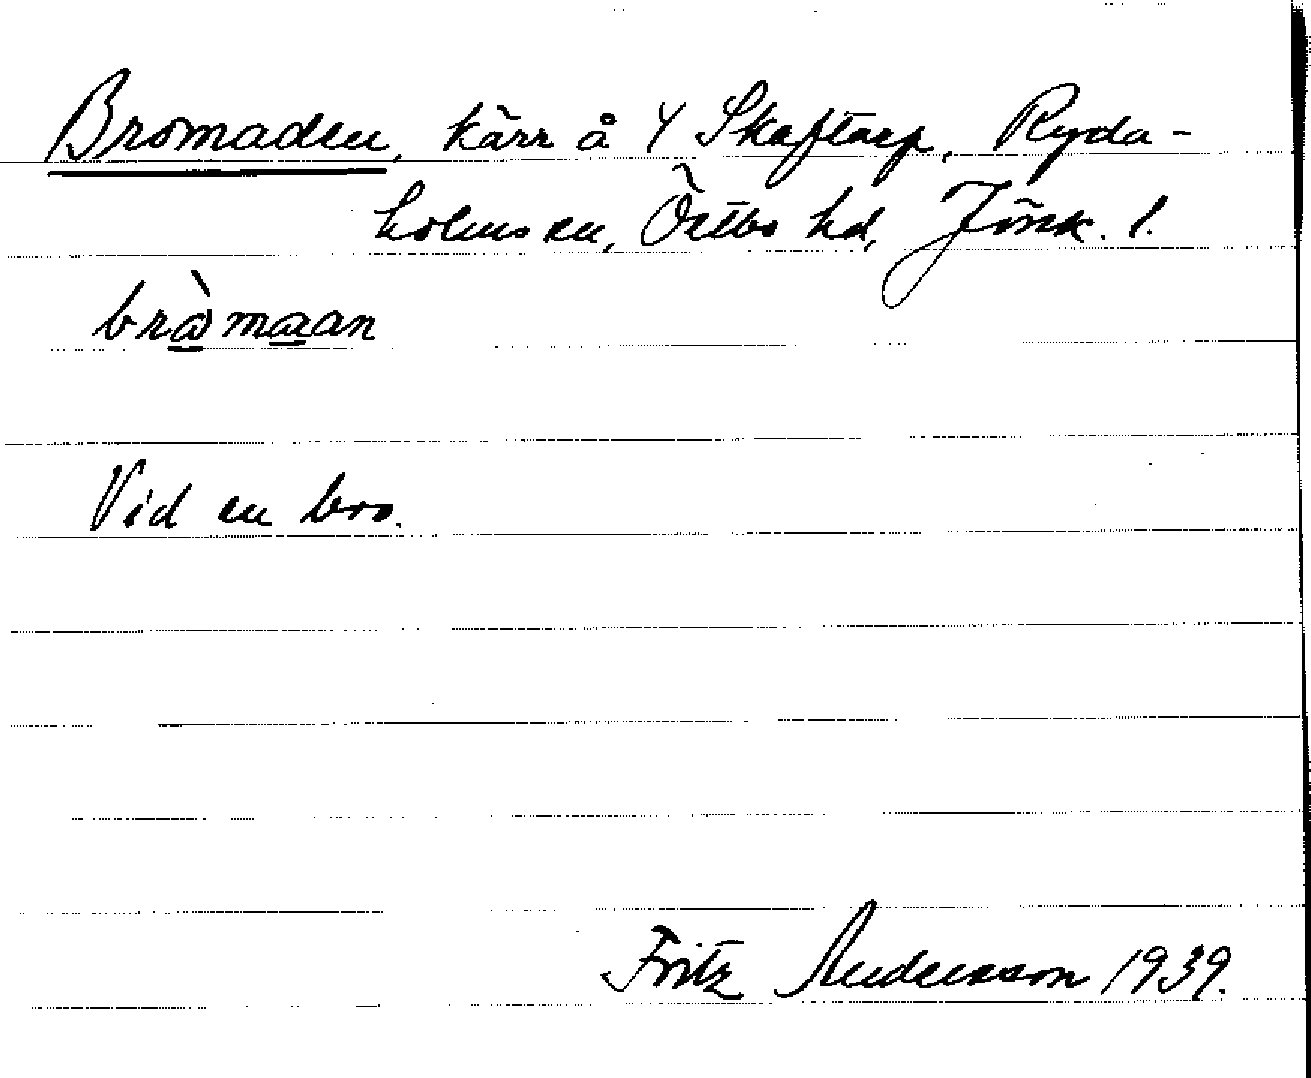 Bromaden, kärr å Y Skaftarp, Ryda-
holms sn, Östbo hd, Jönk. l.
bràmaan
Vid en bro.
Fritz Andersson 1939.